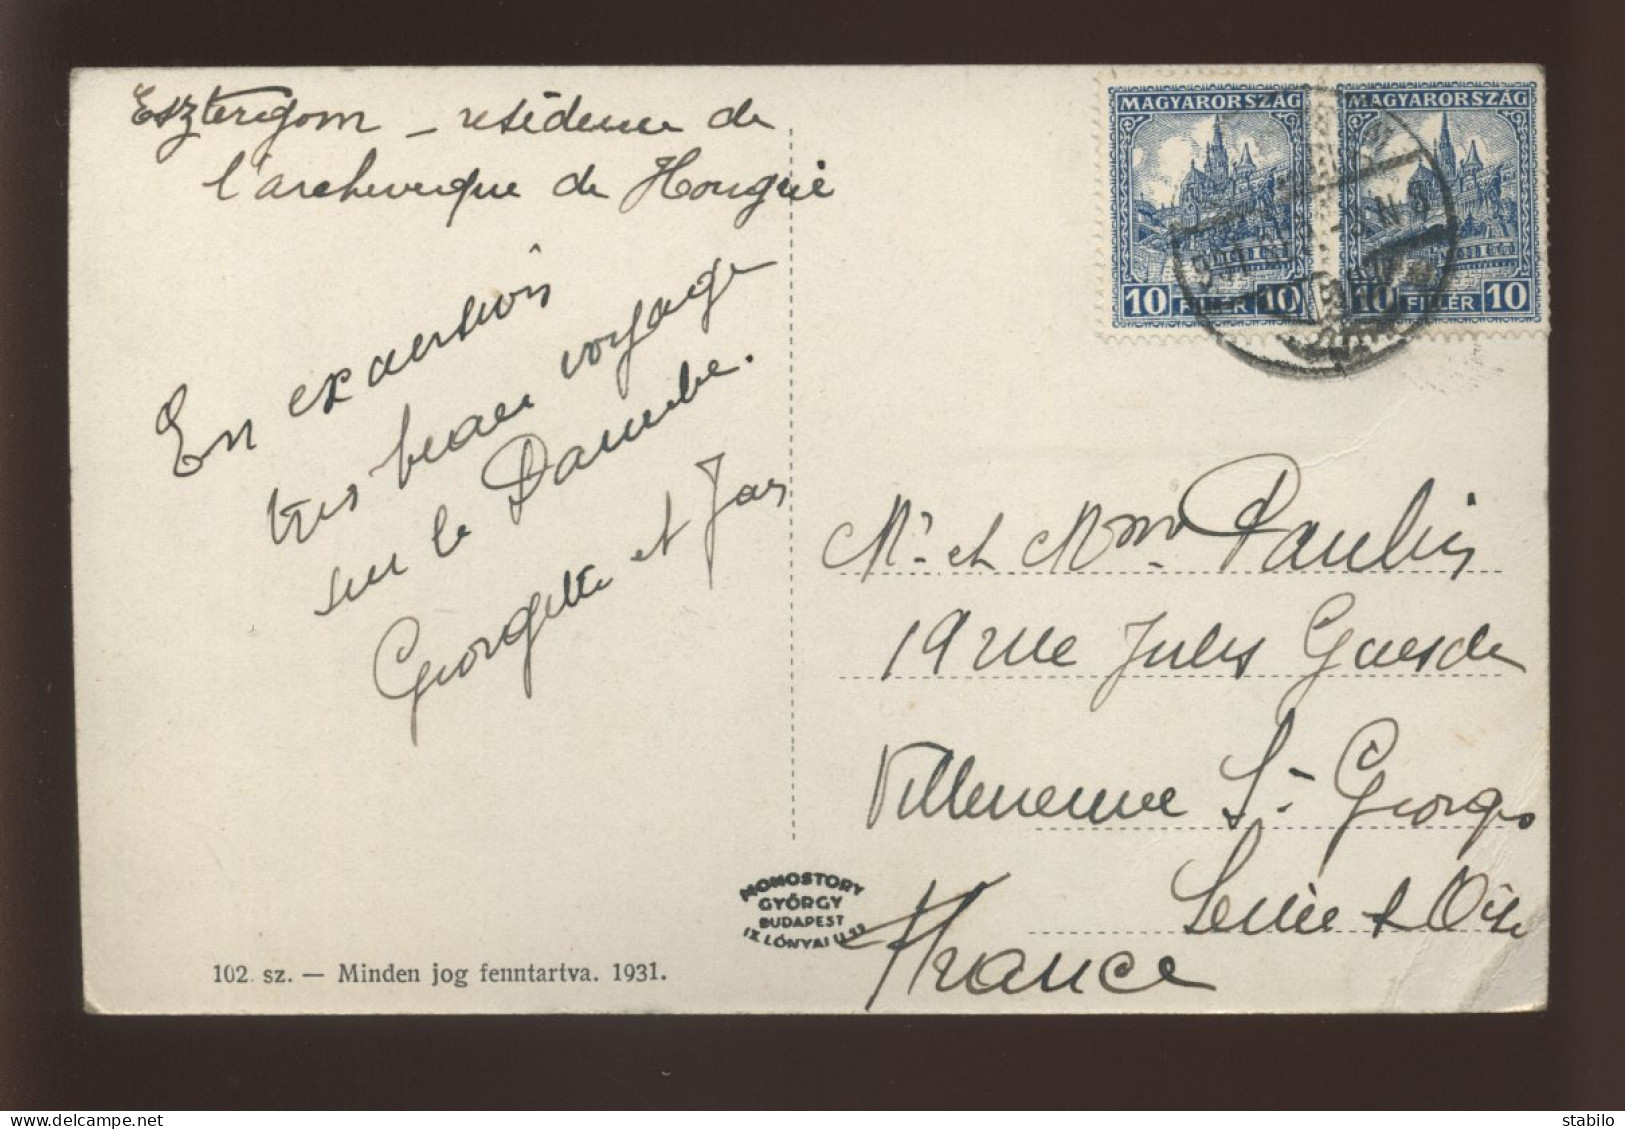 Esztergom - résidence de
l'archevêque de Hongrie
En excursion
très beau voyage
sur le Danube.
Georgette et
MAGYARORSZÁG
10 FILLÉR 10
MAGYARORSZÁG
10 FILLÉR 10
Mr. et Mme. Paulin
19 rue Jules Guesde
Villeneuve St-Georges
Seine & Oise
France
MONOSTORY
GYÖRGY
BUDAPEST
IX LÓNYAI U.
102. sz. — Minden jog fenntartva. 1931.
stabylo